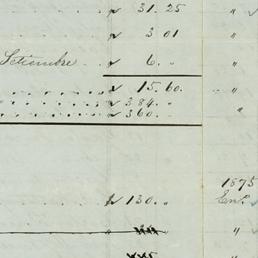 $ 31. 25 "
" 3 01 "
Setiembre " 6. " "
$ 15. 60. "
" 384. "
" 360. "
1875
$ 130. " En.º
"
"